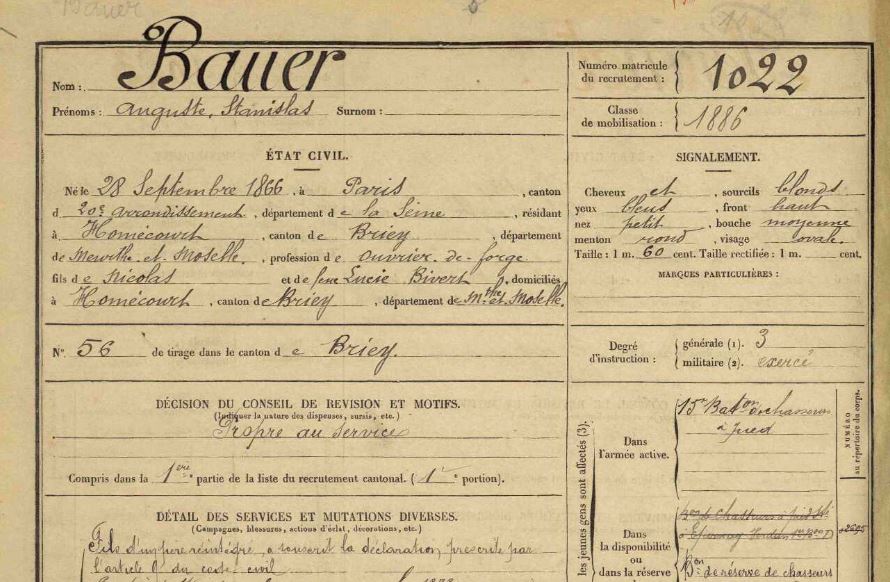 Bauer
Nom : Bauer
Prénoms : Auguste, Stanislas Surnom :
Numéro matricule du recrutement : 1022
Classe de mobilisation : 1886
ÉTAT CIVIL.
Né le 28 Septembre 1866, à Paris, canton
d 20e arrondissement, département de la Seine, résidant
à Homécourt, canton de Briey, département
de Meurthe et Moselle, profession de ouvrier de forge
fils de Nicolas et de feue Lucie Bivert, domiciliés
à Homécourt, canton de Briey, département de Mthe et Moselle.
No. 56 de tirage dans le canton de Briey.
SIGNALEMENT.
Cheveux et, sourcils blonds
yeux bleus, front haut
nez petit, bouche moyenne
menton rond, visage ovale.
Taille : 1 m. 60 cent. Taille rectifiée : 1 m. cent.
MARQUES PARTICULIÈRES :
Degré d'instruction : générale (1). 3
militaire (2). exercé
DÉCISION DU CONSEIL DE REVISION ET MOTIFS.
(Indiquer la nature des dispenses, sursis, etc.)
Propre au service
Compris dans la 1ère partie de la liste du recrutement cantonal. (1e portion).
DÉTAIL DES SERVICES ET MUTATIONS DIVERSES.
(Campagnes, blessures, actions d'éclat, décorations, etc.)
Fils d'un père réintégré, a souscrit la déclaration prescrite par
l'article 9 du code civil
les jeunes gens sont affectés (3).
Dans l'armée active.
15e Baton de chasseurs
à pied
NUMÉRO
au répertoire du corps.
Dans la disponibilité ou dans la réserve
Bon de chasseurs à pied
Bon de réserve de chasseurs